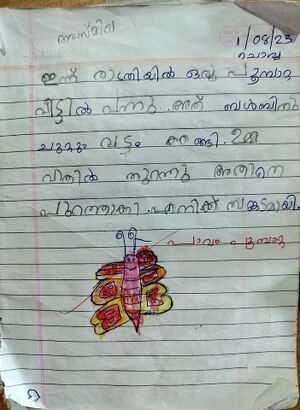 അസ്മിയ
1/08/23
ചൊവ്വ
ഇന്ന് രാത്രിയിൽ ഒരു പൂമ്പാറ്റ
വീട്ടിൽ വന്നു. അത് ബൾബിനു
ചുറ്റും വട്ടം കറങ്ങി. ഉമ്മ
വാതിൽ തുറന്നു അതിനെ
പുറത്താക്കി. എനിക്ക് സങ്കടമായി.
പാവം പൂമ്പാറ്റ